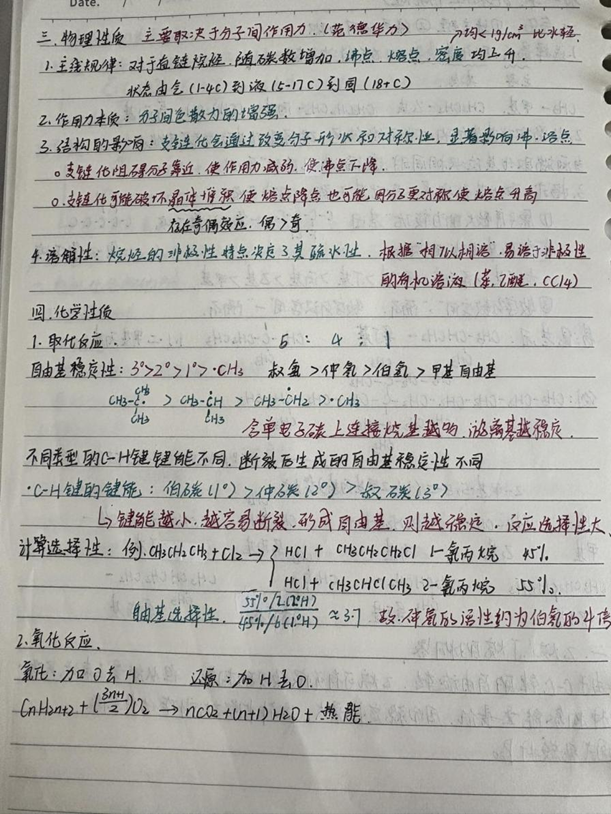 Date. / /
三.物理性质 主要取决于分子间作用力.(范德华力) 均<1g/cm³ 比水轻.
1.主线规律:对于直链烷烃,随碳数增加,沸点.熔点.密度均上升.
状态由气(1-4C)到液(5-17C)到固(18+C)
2.作用力本质:分子间色散力的增强.
3.结构的影响:支链化会通过改变分子形状和对称性,显著影响沸.熔点
o支链化阻碍分子靠近.使作用力减弱.使沸点下降.
o支链化可能破坏晶体堆积使熔点降点也可能因分子更对称使熔点升高
存在奇偶效应.偶>奇.
4.溶解性:烷烃的非极性特点决定了其疏水性.根据"相似相溶".易溶于非极性
的有机溶液(苯.乙醚.CCl4)
四.化学性质
1.取代反应. 5 : 4 : 1
自由基稳定性:3°>2°>1°>·CH3 叔氢>仲氢>伯氢>甲基自由基
CH3
CH3-C· > CH3-ĊH > CH3-ĊH2 > ·CH3
CH3 CH3
含单电子碳上连接烷基越多,游离基越稳定.
不同类型的C-H键键能不同.断裂后生成的自由基稳定性不同
·C-H键的键能:伯碳(1°)>仲碳(2°)>叔碳(3°)
↳键能越小.越容易断裂.形成自由基.则越稳定.反应选择性大.
计算选择性:例.CH3CH2CH3+Cl2→ HCl + CH3CH2CH2Cl 1-氯丙烷 45%
HCl + CH3CHClCH3 2-氯丙烷 55%.
自由基选择性. 55%/2(2°H)
45%/6(1°H) ≈3.7 故.仲氢的活性约为伯氢的4倍
2.氧化反应.
氧化:加O去H. 还原:加H去O.
CnH2n+2+(3n+1/2)O2→nCO2+(n+1)H2O+热能.